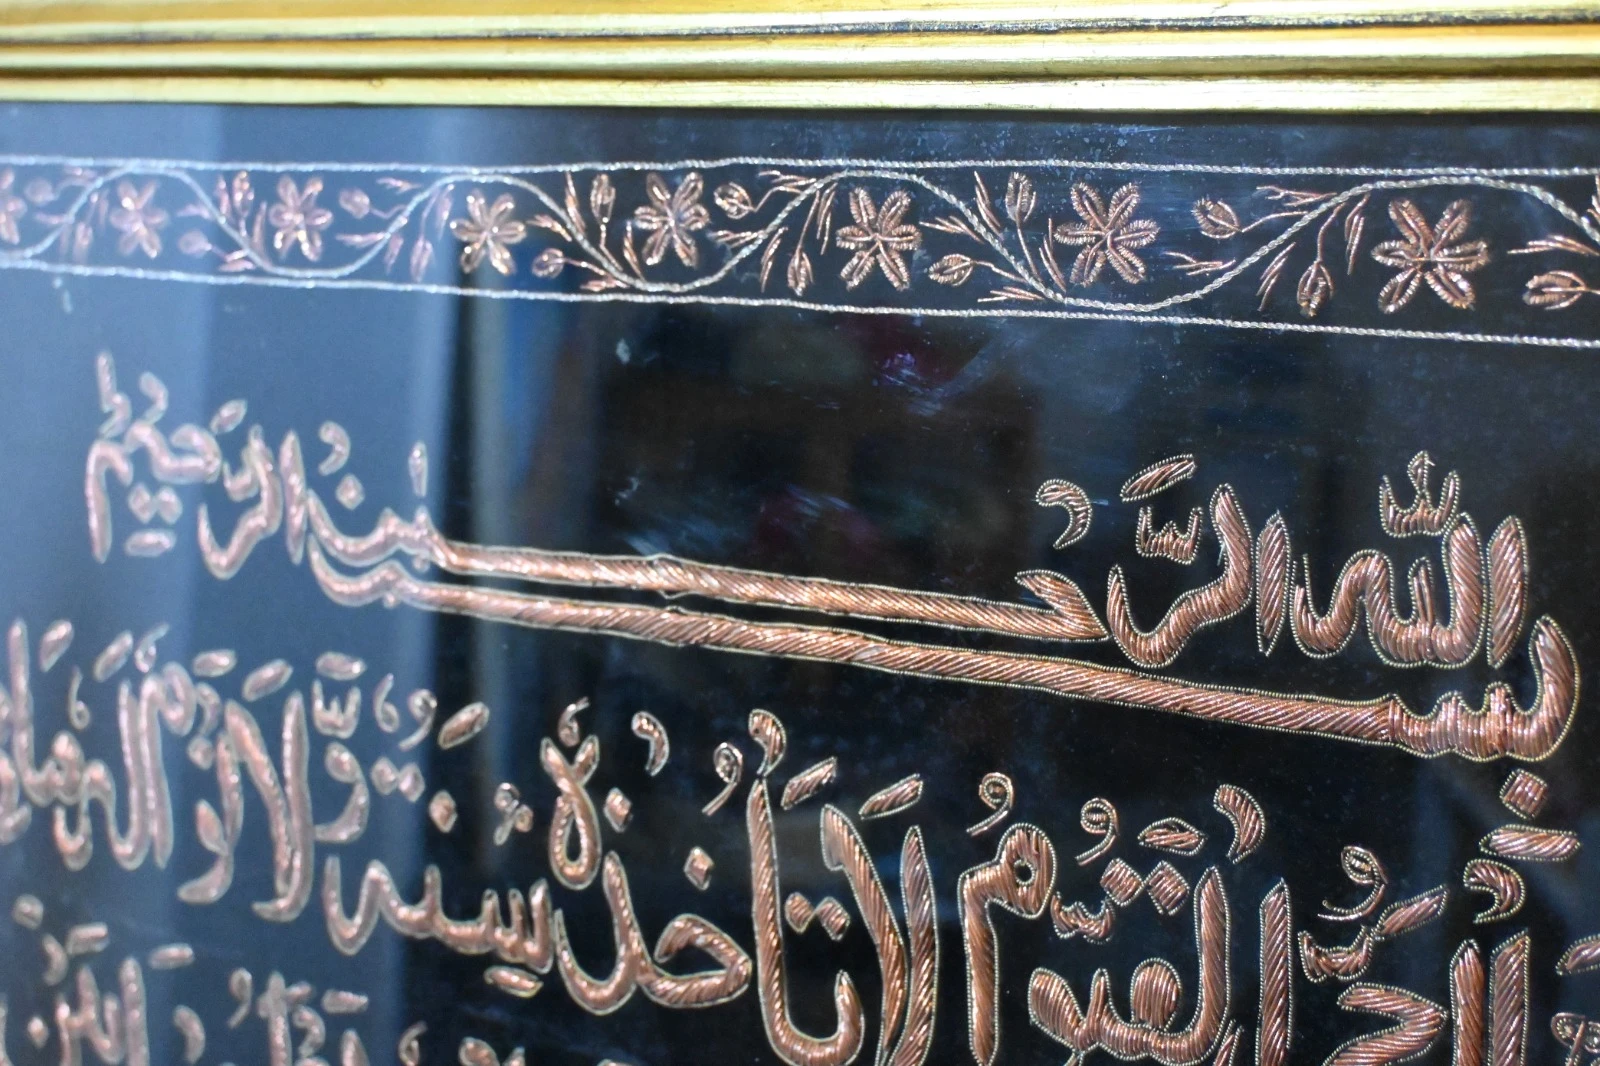 بِسْمِ اللّٰهِ الرَّحْمٰنِ الرَّحِيْمِ
اَلْحَيُّ الْقَيُّوْمُ لَا تَأْخُذُهٗ سِنَةٌ وَّلَا نَوْمٌ لَهٗ مَا